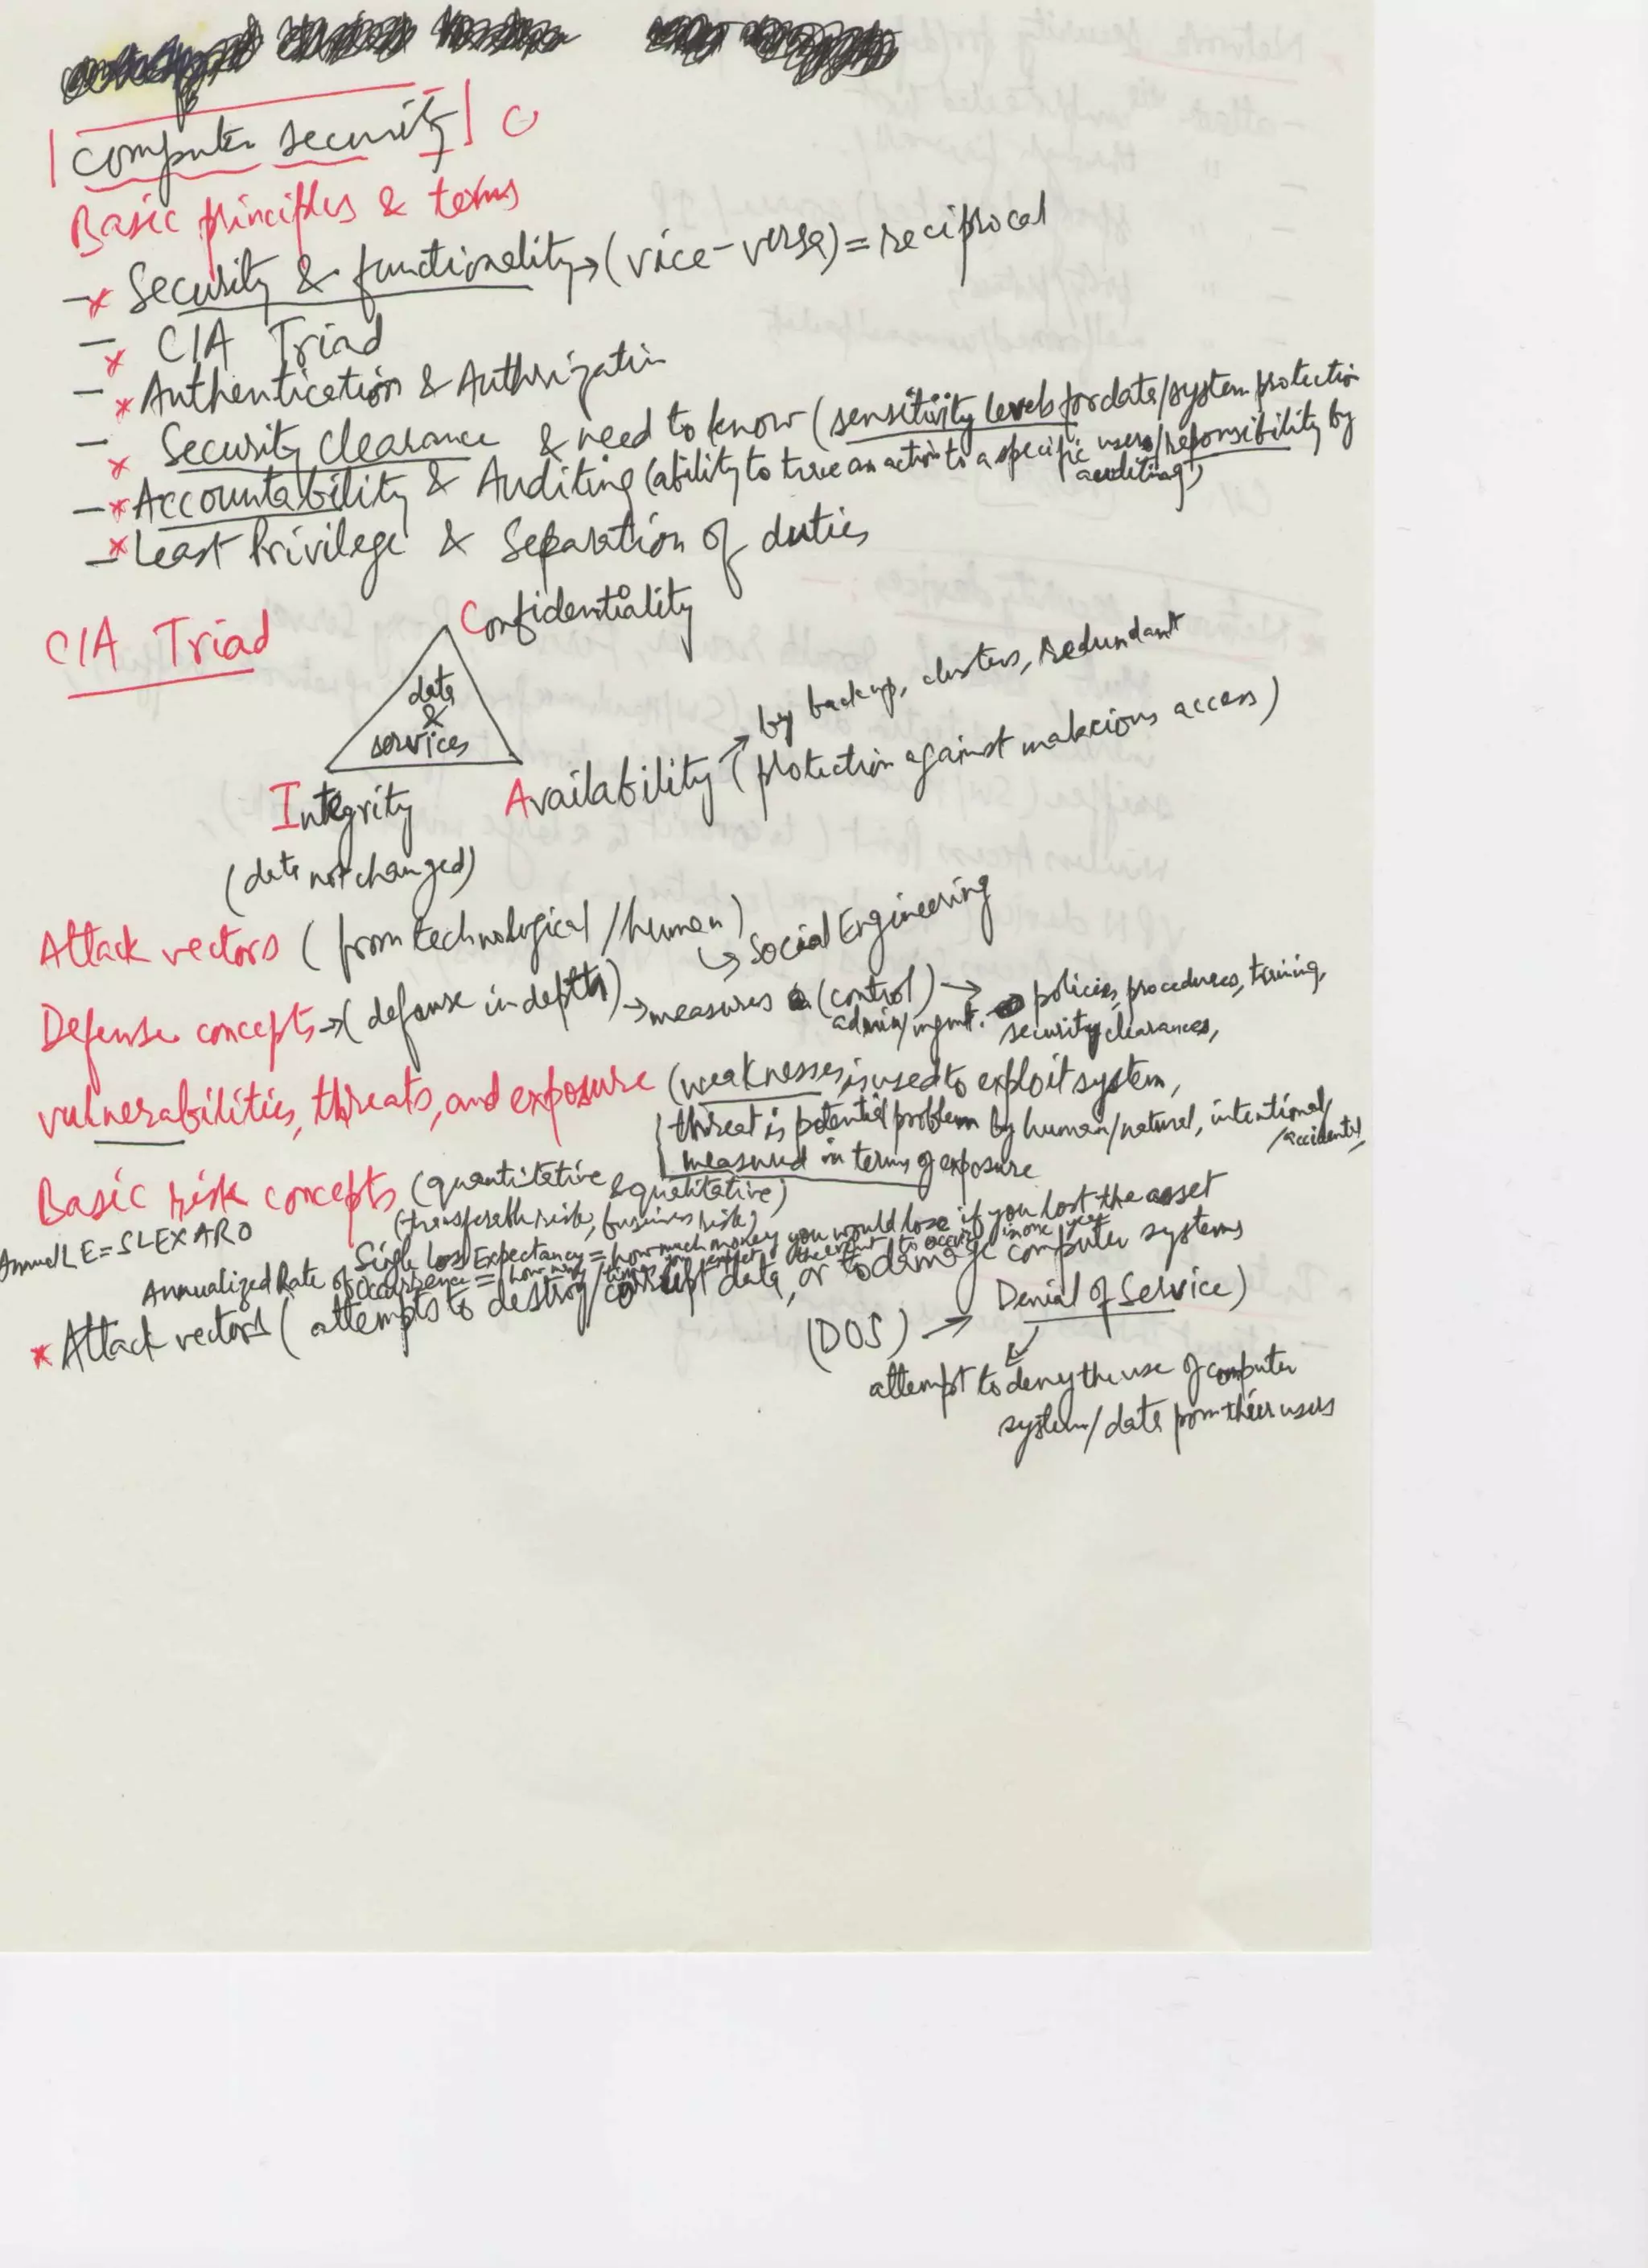 computer security
Basic principles & terms
- * Security & functionality → (vice-versa) = reciprocal
- * CIA Triad
- * Authentication & Authrization
- * Security clearance & need to know (sensitivity levels for data/system protection
- * Accountability & Auditing (ability to trace an action to a specific users/reponsibility by
auditing)
- * Least Privilege & Separation of duties
CIA Triad
Confidentiality
data
&
services
by backup, clusters, redundant
Integrity
Availability (protection against malicious access)
(data not changed)
Attack vectors (from technological/human)
↳ Social Engineering
Defense concepts → (defense in depth) → measures (control) → policies, procedures, training,
admin/mgmt. security clearances,
vulnerabilities, threats, and exposure (weaknesses, is used to exploit system,
threat is potential problem by human/natural, intentional/
/accidental,
measured in terms of exposure
Basic risk concepts (quantitative & qualitative)
(transferable risk, business risk)
Annual L E = SLE X ARO
Single Loss Expectancy = how much money you would lose if you lost the asset
Annualized Rate of Occurrence = how many times you expect the event to occur in one year
* Attack vectors (attempts to destroy/corrupt data, or to damage computer systems
(DOS) → Denial of Service)
attempt to deny the use of computer
system/data from their users